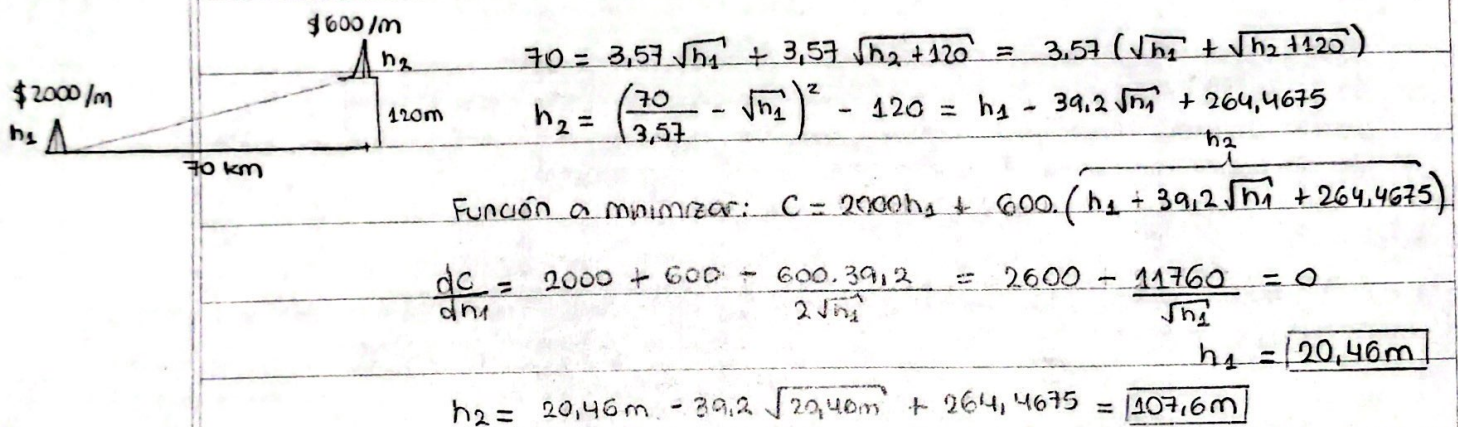 $600/m
h₂
$2000/m
h₁
120m
70 km
70 = 3,57 √h₁ + 3,57 √(h₂ + 120) = 3,57 (√h₁ + √(h₂ + 120))
h₂ = (70/3,57 - √h₁)² - 120 = h₁ - 39,2 √h₁ + 264,4675
h₂
Función a minimizar: C = 2000h₁ + 600.(h₁ - 39,2 √h₁ + 264,4675)
dC/dh₁ = 2000 + 600 - 600.39,2/(2√h₁) = 2600 - 11760/√h₁ = 0
h₁ = 20,46m
h₂ = 20,46m - 39,2 √20,46m + 264,4675 = 107,6m